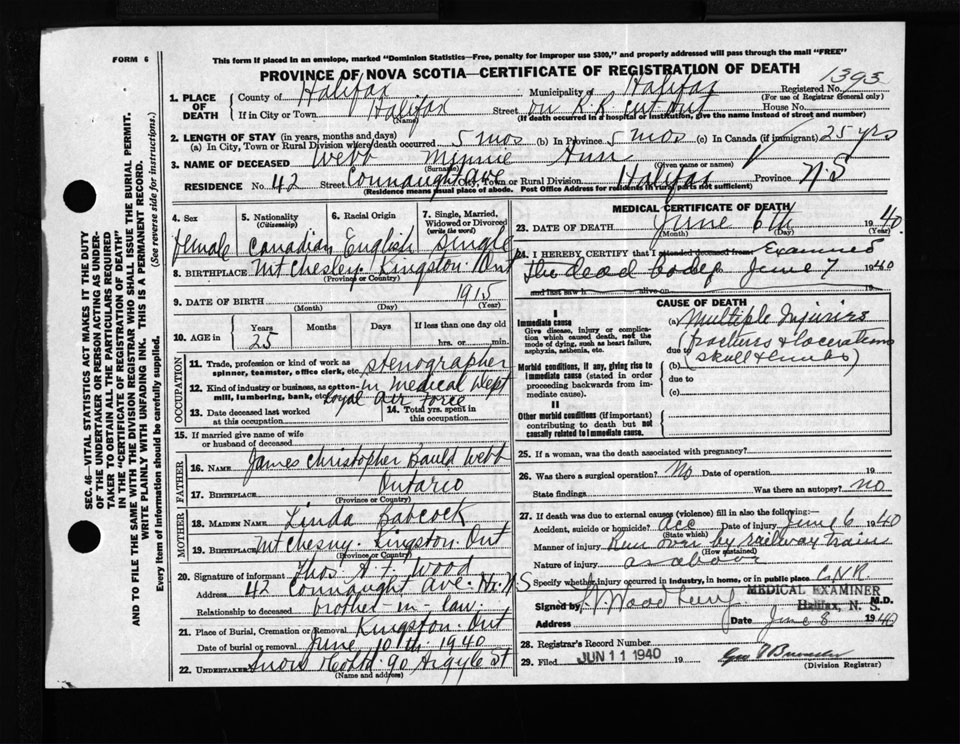 FORM 6
This form if placed in an envelope, marked "Dominion Statistics—Free, penalty for improper use $300," and properly addressed will pass through the mail "FREE"
PROVINCE OF NOVA SCOTIA—CERTIFICATE OF REGISTRATION OF DEATH
1393
1. PLACE OF DEATH
County of Halifax
Municipality of Halifax
Registered No.
(For use of Registrar General only)
If in City or Town Halifax
(Name)
Street on R.R cut out House No.
(If death occurred in a hospital or institution, give the name instead of street and number)
2. LENGTH OF STAY (in years, months and days)
(a) In City, Town or Rural Division where death occurred 5 mos (b) In Province 5 mos (c) In Canada (if immigrant) 25 yrs
3. NAME OF DECEASED Webb Minnie Ann
(Surname) (Given name or names)
RESIDENCE No. 42 Street Connaught Ave City, Town or Rural Division Halifax Province N.S
(Residence means usual place of abode. Post Office Address for residents in rural parts not sufficient)
4. Sex
female
5. Nationality
(Citizenship)
Canadian
6. Racial Origin
English
7. Single, Married, Widowed or Divorced
(write the word)
single
8. BIRTHPLACE Mt Chesley. Kingston. Ont
(Province or Country)
9. DATE OF BIRTH 1915
(Month) (Day) (Year)
10. AGE in
Years 25
Months
Days
If less than one day old
hrs. or min.
OCCUPATION
11. Trade, profession or kind of work as spinner, teamster, office clerk, etc. stenographer
12. Kind of industry or business, as cotton-mill, lumbering, bank, etc. in Medical Dept Royal Air Force
13. Date deceased last worked at this occupation
14. Total yrs. spent in this occupation
15. If married give name of wife or husband of deceased
FATHER
16. NAME James Christopher Bauld Webb
17. BIRTHPLACE Ontario
(Province or Country)
MOTHER
18. MAIDEN NAME Linda Babcock
19. BIRTHPLACE Mt Chesny. Kingston. Ont
(Province or Country)
20. Signature of informant Thos A F. Wood
Address 42 Connaught Ave. Hx. N S
Relationship to deceased brother-in-law.
21. Place of Burial, Cremation or Removal Kingston. Ont
Date of burial or removal June 10th. 1940
22. UNDERTAKER Snow & Co Ltd. 90 Argyle St
(Name and address)
MEDICAL CERTIFICATE OF DEATH
23. DATE OF DEATH June 6th 1940.
(Month) (Day) (Year)
24. I HEREBY CERTIFY that I attended deceased from Examined
the dead body June 7 1940
and last saw h alive on 19
CAUSE OF DEATH
I
Immediate cause
Give disease, injury or complication which caused death, not the mode of dying, such as heart failure, asphyxia, asthenia, etc.
(a) Multiple Injuries
due to (fractures & lacerations
(b) skull & limbs)
Morbid conditions, if any, giving rise to immediate cause (stated in order proceeding backwards from immediate cause).
due to
(c)
II
Other morbid conditions (if important) contributing to death but not causally related to immediate cause.
25. If a woman, was the death associated with pregnancy?
26. Was there a surgical operation? No Date of operation 19
State findings Was there an autopsy? no
27. If death was due to external causes (violence) fill in also the following:—
Accident, suicide or homicide? acc Date of injury June 6 1940
(State which)
Manner of injury Run over by railway train
(How sustained)
Nature of injury as above
Specify whether injury occurred in industry, in home, or in public place C.N.R.
Signed by M.D.
MEDICAL EXAMINER
Halifax, N. S.
Address Date June 8 1940
28. Registrar's Record Number
29. Filed JUN 11 1940 19
(Division Registrar)
SEC. 46—VITAL STATISTICS ACT MAKES IT THE DUTY OF THE UNDERTAKER OR PERSON ACTING AS UNDERTAKER TO OBTAIN ALL THE PARTICULARS REQUIRED IN THE "CERTIFICATE OF REGISTRATION OF DEATH" AND TO FILE THE SAME WITH THE DIVISION REGISTRAR WHO SHALL ISSUE THE BURIAL PERMIT.
WRITE PLAINLY WITH UNFADING INK. THIS IS A PERMANENT RECORD.
Every item of information should be carefully supplied. (See reverse side for instructions.)